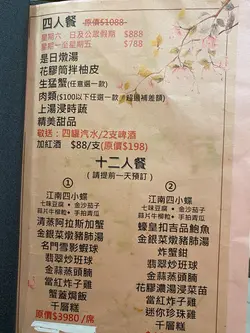 四人餐 原價$1088
星期六、日及公眾假期 $888
星期一至星期五 $788
是日燉湯
花膠筒拌柚皮
生猛蟹(任意選一款)
肉類($100以下任選一款／超過補差額)
上湯浸時蔬
精美甜品
敬送：四罐汽水/2支啤酒
加紅酒 $88/支(原價$198)
十二人餐
(請提前一天預訂)
①
江南四小蝶
七味豆腐•金沙茄子
蒜片牛柳粒•手拍青瓜
金銀菜燉豬肺湯
清蒸阿拉斯加蟹
名門雪影蝦球
翡翠炒班球
金蒜蒸頭腩
當紅炸子雞
蟹蓋焗飯
千層糕
原價$3980/席
②
江南四小蝶
七味豆腐•金沙茄子
蒜片牛柳粒•手拍青瓜
蠔皇扣吉品鮑魚
金銀菜燉豬肺湯
炸蟹鉗
翡翠炒班球
金蒜蒸頭腩
花膠濃湯浸菜苗
當紅炸子雞
迷你珍珠雞
千層糕